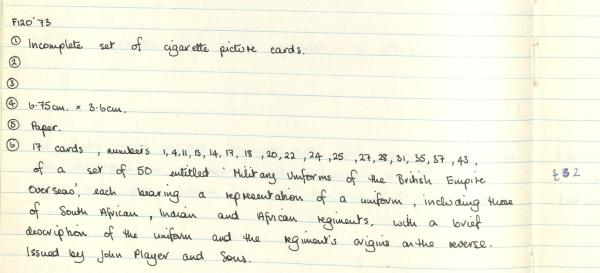 F120'73
① Incomplete set of cigarette picture cards.
②
③
④ 6.75cm. × 3.6cm.
⑤ Paper.
⑥ 17 cards, numbers 1, 4, 11, 13, 14, 17, 18, 20, 22, 24, 25, 27, 28, 31, 35, 37, 43,
of a set of 50 entitled 'Military Uniforms of the British Empire
Overseas', each bearing a representation of a uniform, including those
of South African, Indian and African regiments, with a brief
description of the uniform and the regiment's origins on the reverse.
Issued by John Player and Sons.
2